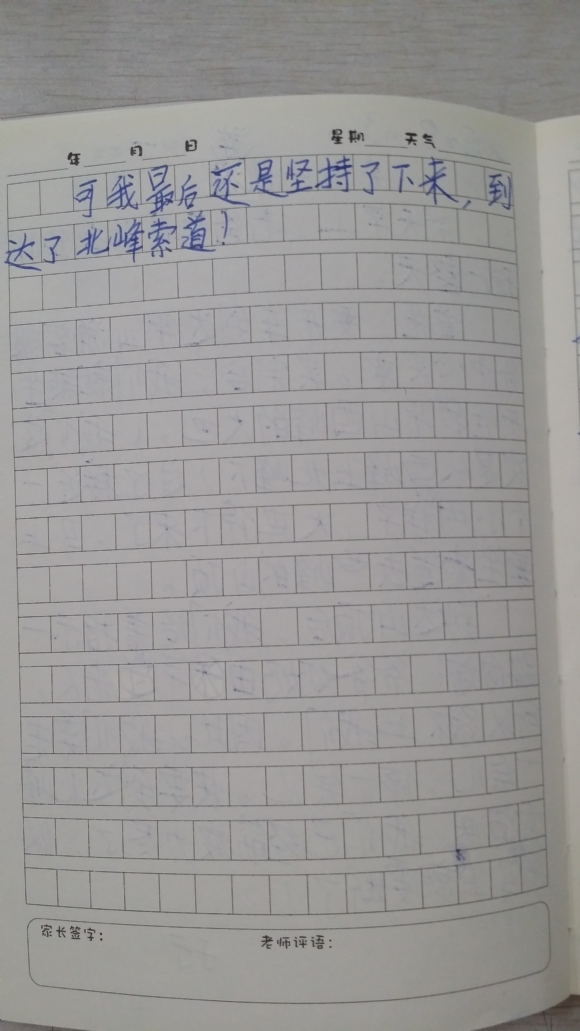 年 月 日 星期 天气
可我最后还是坚持了下来,到
达了北峰索道!
家长签字: 老师评语: